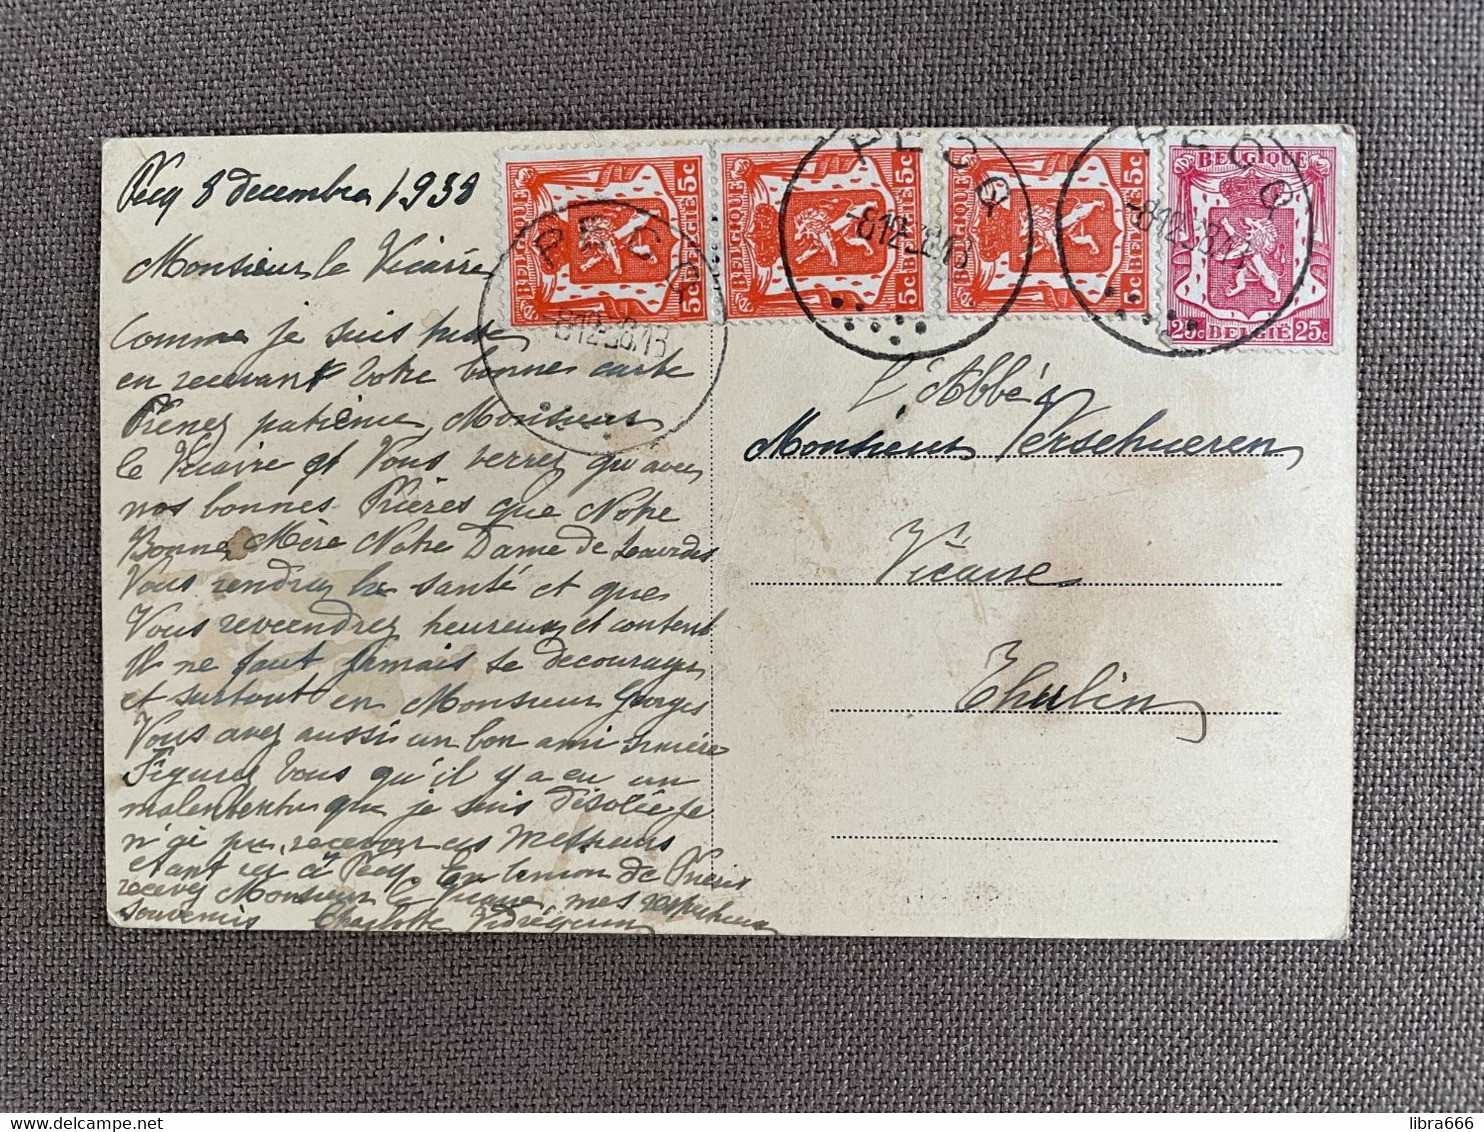 Pecq 8 decembre 1938
Monsieur le Vicaire
Comme je suis
en recevant Votre bonnes carte
Prenez patience, Monsieurs
le Vicaire et Vous verrez qu'avec
nos bonnes Prières que Notre
Bonne Mère Notre Dame de Lourdes
Vous rendrez la santé et que
Vous reveendrez heureux et content
Il ne faut jamais se decourager
et surtout en Monsieur Georges
Vous avez aussi un bon ami sincere
Figurez Vous qu'il y a eu un
malentendu que je suis désolée je
n'ai pu recevoir ces Messieurs
etant à Pecq En Union de Prières
recevez Monsieur le Vicaire, mes respectueux
souvenirs Charlotte
BELGIQUE 5c
5c BELGIË
BELGIQUE 5c
5c BELGIË
BELGIQUE 5c
5c BELGIË
BELGIQUE
25c BELGIË 25c
PECQ
-8 12 38 13
PECQ
-8 12 38 13
PECQ
-8 12 38 13
L'Abbé
Monsieur Verschueren
Vicaire
Thulin
delcampe.net
libra666